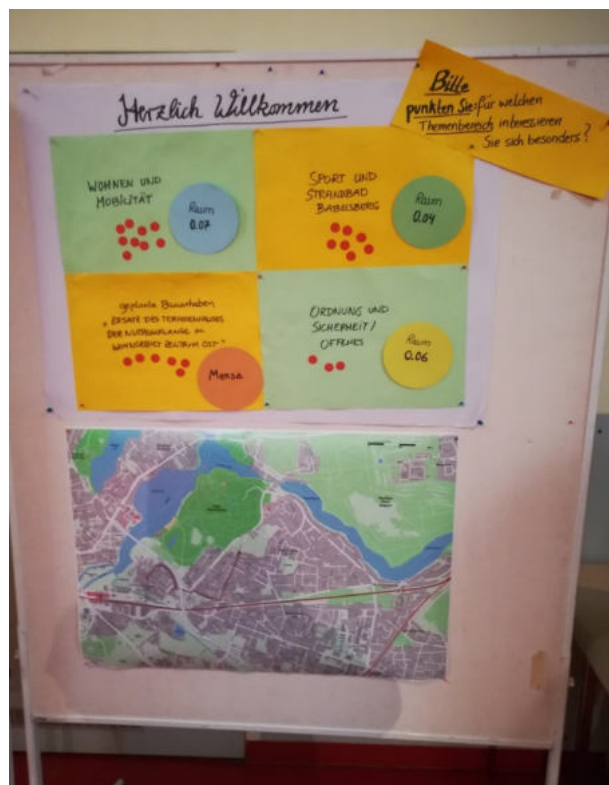 Herzlich Willkommen
Bitte
punkten Sie: für welchen
Themenbereich interessieren
Sie sich besonders?
WOHNEN UND
MOBILITÄT
Raum
0.07
SPORT UND
STRANDBAD
BABELSBERG
Raum
0.04
geplante Bauvorhaben
"ERSATZ DES TERRASSENHAUSES
DER NUTHESCHLANGE IM
WOHNGEBIET ZENTRUM OST"
Mensa
ORDNUNG UND
SICHERHEIT/
OFFENES
Raum
0.06